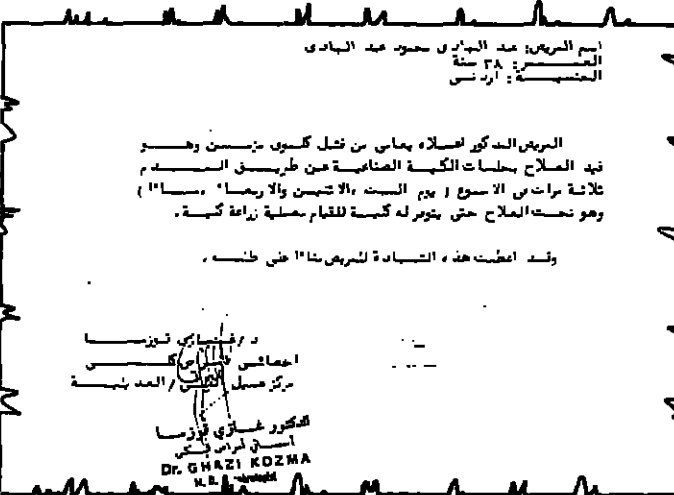 اسم المريض: عبد الهادي محمود عبد الهادي
العمـــــر: ٣٨ سنة
الجنسيـــة: اردنـي
المريض المذكور اعـلاه يعاني من فشل كلـوى مزمـــن وهـــو
قيد العلاج بجلسات الكليـة الصناعيـة عـن طريـــق الـــدم
ثلاثـة مرات في الاسبوع ( يوم السبت ،الاثنيـن والاربعـاء ،مسـاءا )
وهو تحـت العلاج حتى يتوفر له كليـة للقيام بعملية زراعة كليـة .
وقـد اعطيت هذه الشهـادة للمريض بناءا على طلبـه .
د /غـازي قـوزمـا
اخصائـي امراض كلـــى
مركز غسيل الكلـى /
الدكتور غـازي قوزمـا
أخصائي أمراض الكلى
Dr. GHAZI KOZMA